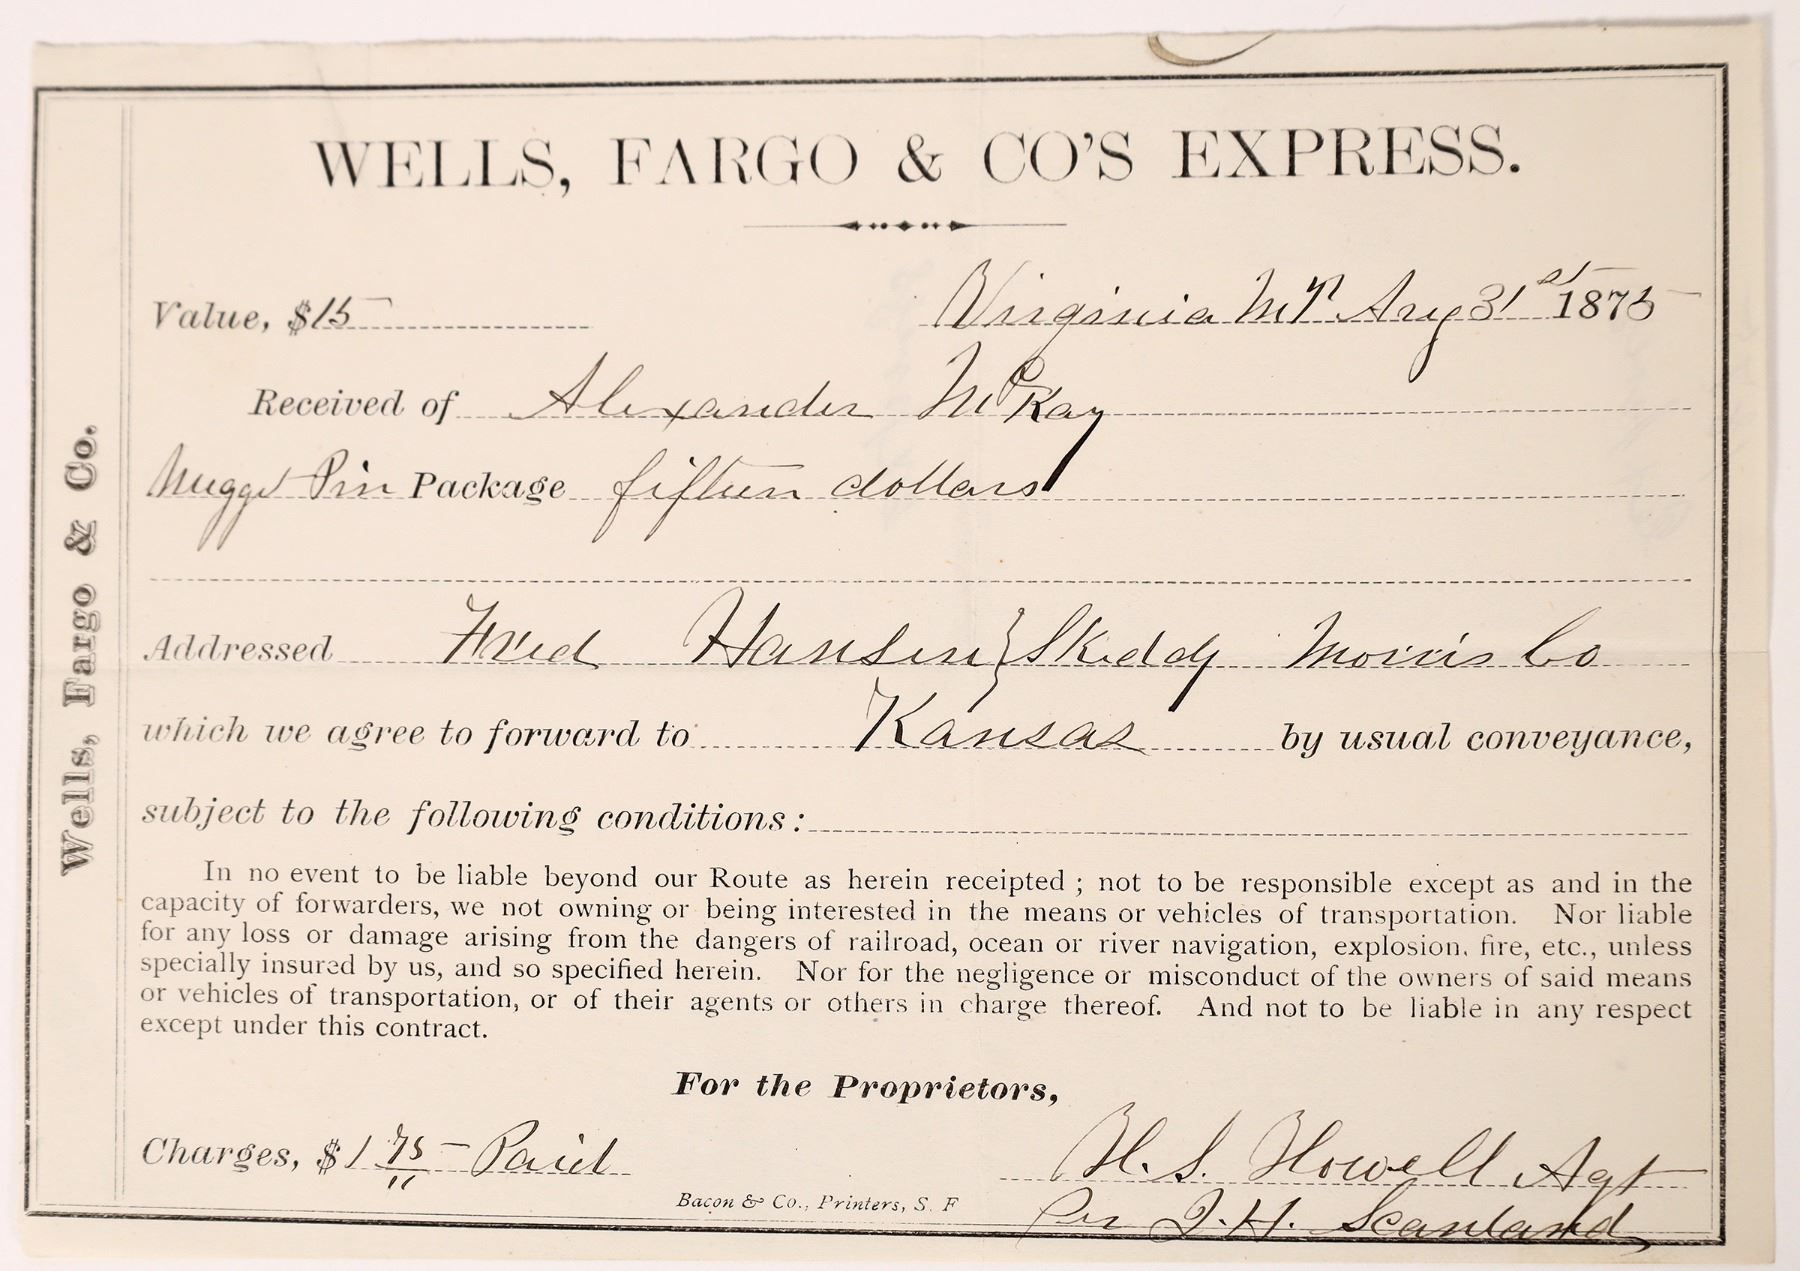 WELLS, FARGO & CO'S EXPRESS.
Value, $15 Virginia MT Aug 31st 1875
Received of Alexander McKay
Nugget Pin Package fifteen dollars
Addressed Fred Hansen } Skiddy Morris Co
which we agree to forward to Kansas by usual conveyance,
subject to the following conditions:
In no event to be liable beyond our Route as herein receipted ; not to be responsible except as and in the
capacity of forwarders, we not owning or being interested in the means or vehicles of transportation. Nor liable
for any loss or damage arising from the dangers of railroad, ocean or river navigation, explosion, fire, etc., unless
specially insured by us, and so specified herein. Nor for the negligence or misconduct of the owners of said means
or vehicles of transportation, or of their agents or others in charge thereof. And not to be liable in any respect
except under this contract.
For the Proprietors,
Charges, $ 1 75 - Paid H. S. Howell Agt
Per J. H. Scanland
Bacon & Co., Printers, S. F
Wells, Fargo & Co.